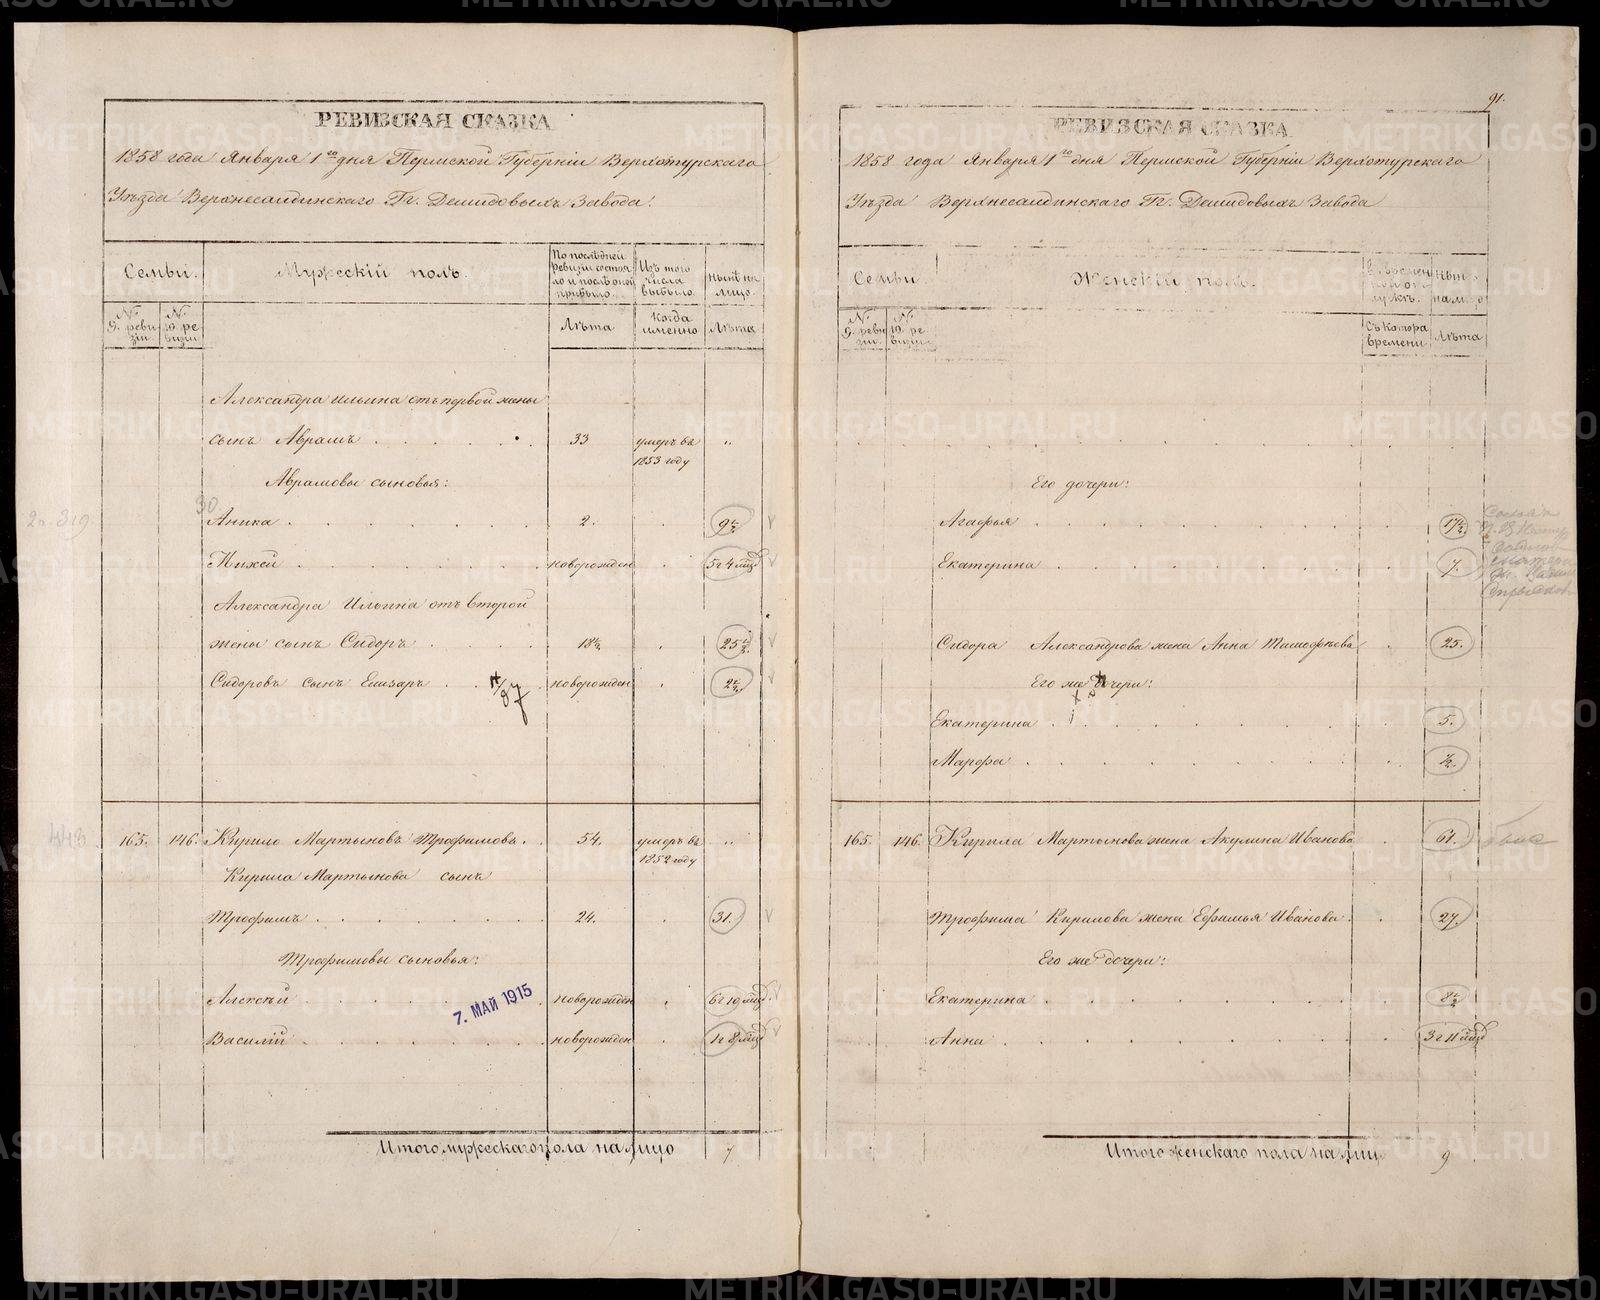 РЕВИЗСКАЯ СКАЗКА
1858 года Января 1го дня Пермской Губерніи Верхотурскаго
Уѣзда Верхнесалдинскаго Гг. Демидовыхъ Завода.
Семьи.
Мужескій полъ.
По послѣдней ревизіи состояло и послѣ оной прибыло.
Изъ того числа выбыло.
нынѣ на лицо.
№ 9. ревизіи.
№ 10 ревизіи
Лѣта
Когда именно
Лѣта
Александра Ильина отъ первой жены
сынъ Аврамъ 33 умеръ въ 1853 году „
Аврамовы сыновья:
30
2п. 319
Аника 2. 9½
Михей новорожден 5г 4 мѣц
Александра Ильина отъ второй
жены сынъ Сидоръ 18½ 25½
Сидоровъ сынъ Елизаръ новорожден 2½
443
165. 146. Кирило Мартыновъ Трофимовъ. 54. умеръ въ 1852 году „
Кирила Мартынова сынъ
Трофимъ 24. 31.
Трофимовы сыновья:
Алексѣй новорожден 6г 10 мѣц
7. МАЙ 1915
Василій новорожден 1г 8 мѣц
Итого мужескаго пола на лицо 7
91.
РЕВИЗСКАЯ СКАЗКА
1858 года Января 1го дня Пермской Губерніи Верхотурскаго
Уѣзда Верхнесалдинскаго Гг. Демидовыхъ Завода
Семьи
Женскій полъ.
Съ котора времени
Лѣта
№ 9. ревизіи.
№ 10. ревизіи
Его дочери:
Агафья 17½
Екатерина 7.
Сидора Александрова жена Анна Тимофѣева 25.
Его же дочери:
Екатерина 5.
Марфа ½.
165. 146. Кирила Мартынова жена Акулина Иванова 61.
Трофима Кирилова жена Ефимья Иванова. 27.
Его же дочери:
Екатерина 8½
Анна 3г 11 мѣц
Итого женскаго пола на лицо 9
METRIKI.GASO-URAL.RU